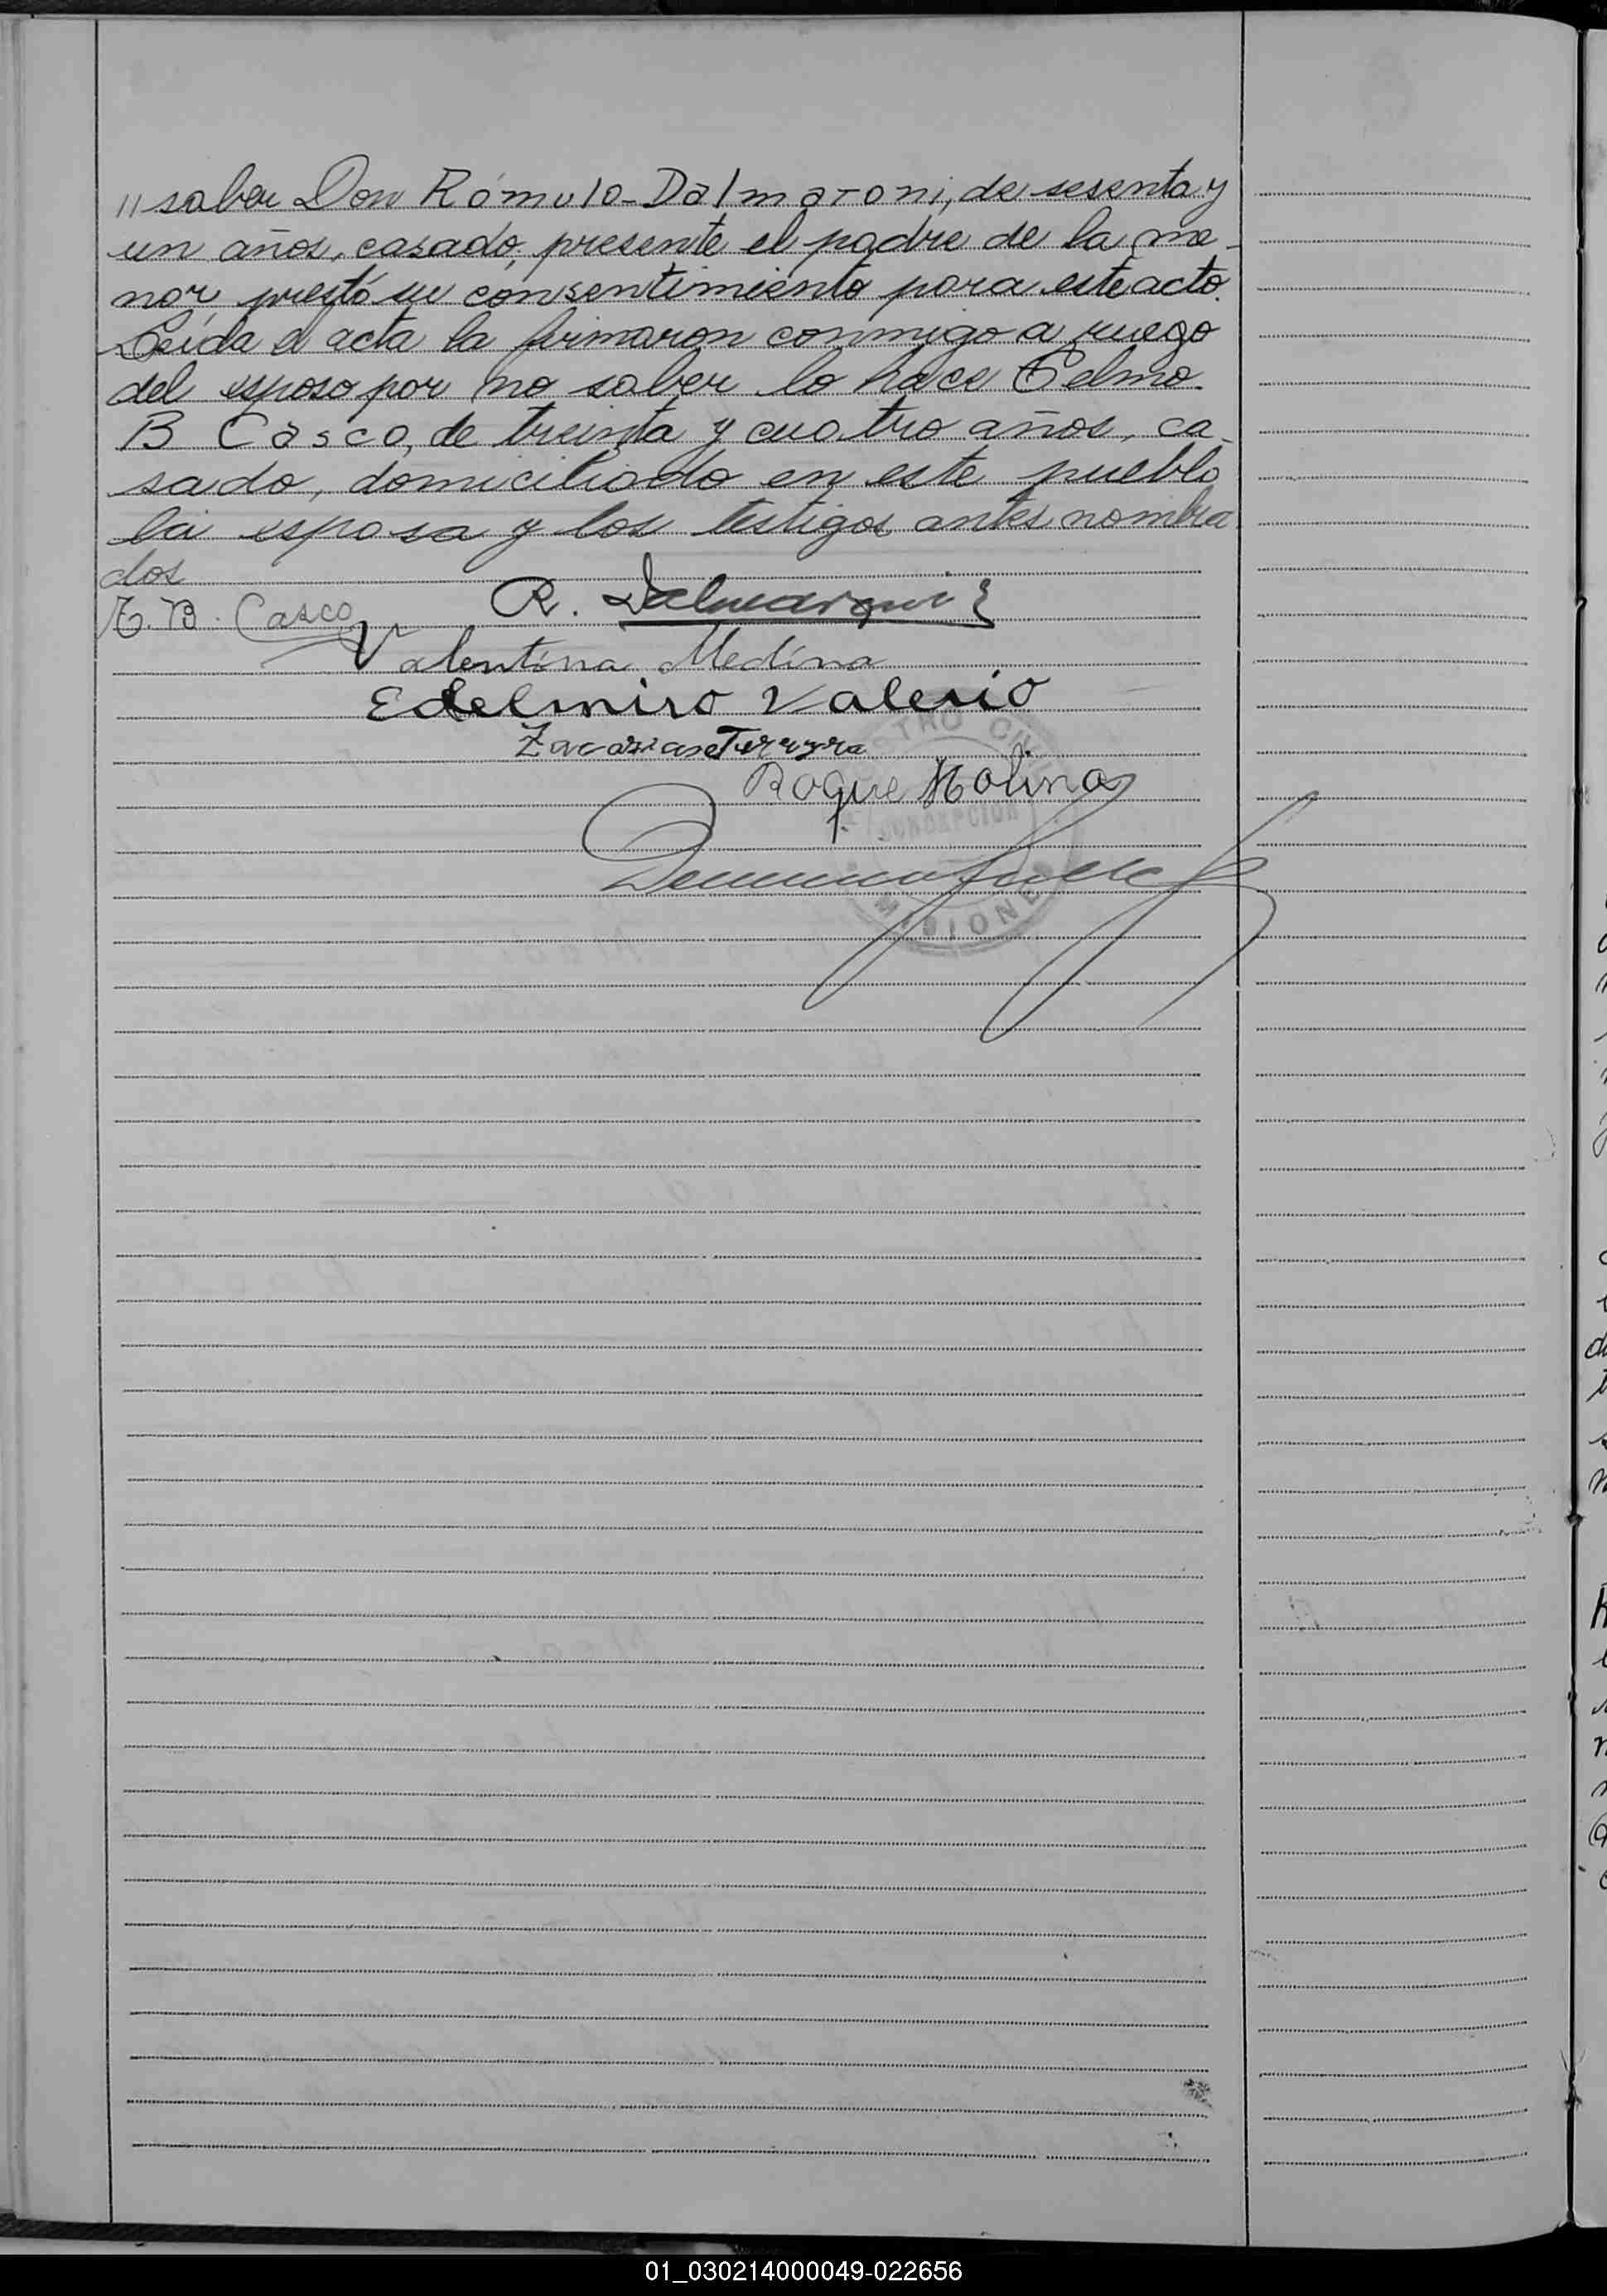 " saber Don Rómulo Dalmaroni, de sesenta y
un años, casado, presente el padre de la me-
nor, prestó su consentimiento para este acto.
Leída el acta la firmaron conmigo a ruego
del esposo por no saber lo hace Telmo
B Casco, de treinta y cuatro años, ca-
sado, domiciliado en este pueblo
la esposa y los testigos antes nombra
dos
T. B. Casco R. Dalmaroni
Valentina Medina
Edelmiro Valerio
Zacarias
Roque Molina
CONCEPCION
MISIONES
01_030214000049-022656